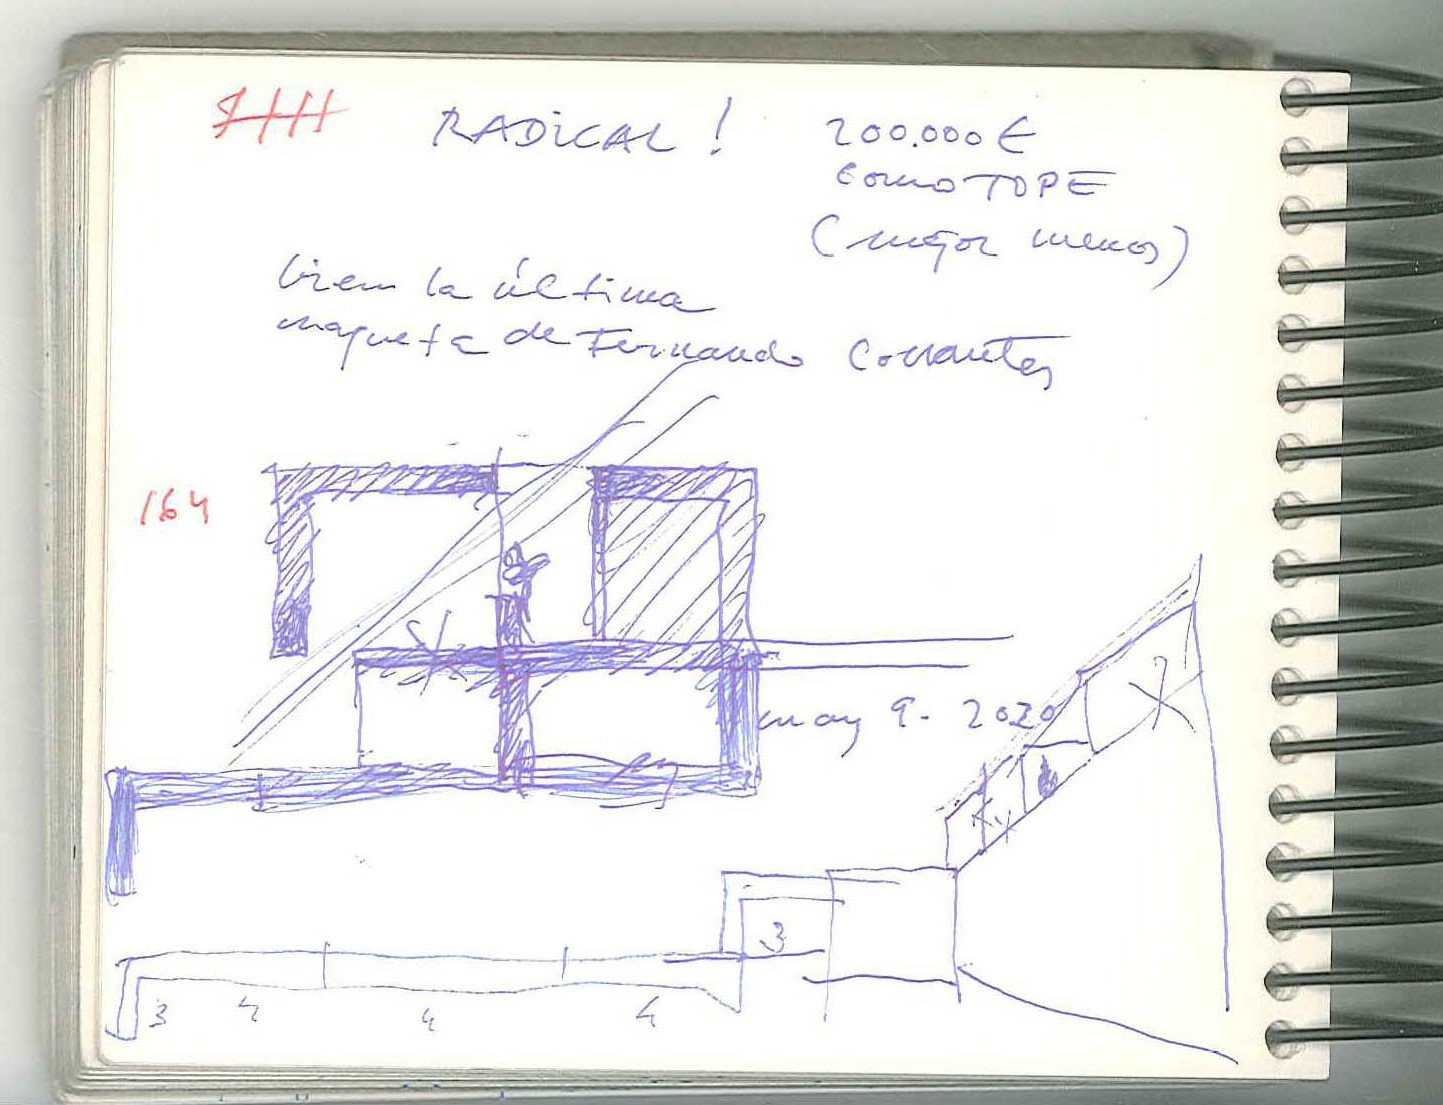 RADICAL! 200.000 €
como TOPE
(mejor menos)
bien la última
maqueta de Fernando Corrantes
164
may 9. 2020
3
3 4 4 4